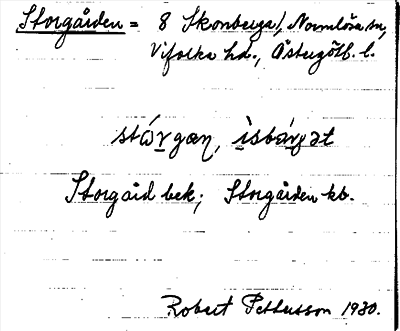 Storgården = 8 Skonberga, Normlösa sn,
Vifolka hd., Östergötl. l.
stɷ́rgæn, ìsbárgət
Storgård bek; Storgården kb.
Robert Pettersson 1930.